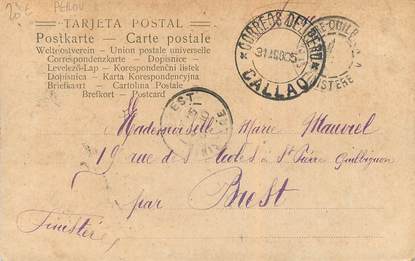 20 E PEROU
TARJETA POSTAL
Postkarte - Carte postale
Weltpostverein - Union postale universelle
Correspondenzkarte - Dopisnice
Levelező-Lap - Korespondenční listek
Dopisnica - Karta Korespondencyjna
Briefkaart - Cartolina Postale
Brefkort - Postcard
CORREOS DEL PERU
31 AGO 05
CALLAO
EST
Mademoiselle Marie Mauviel
19 rue des Écoles à St Pierre Quilbignon
par Brest
Finistère